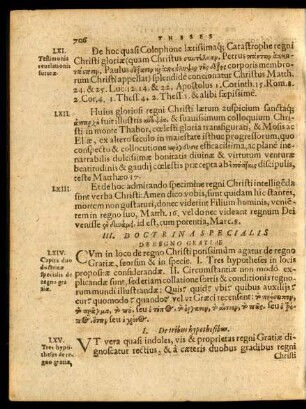 706 THESES
LXI. De hoc quasi Colophone lætissimaq; Catastrophe regni
Testimonia Christi gloriæ (quam Christus
revelationis Paulus corporis membro-
futuræ. rum Christi appellat) splendide concionatur Christus Matth.
24. & 25. Luc. 12. 14. & 21. Apostolus 1. Corinth. 15. Rom. 8.
2. Cor. 4. 1. Thess. 4. 2. Thess. 1. & alibi sæpissime.
LXII. Huius gloriosi regni Christi lætum auspicium sanctaq;
fuit illustris & suavissimum colloquium Chri-
sti in monte Thabor, cœlesti gloria transfigurati, & Mosis ac
Eliæ, ex altero seculo in maiestate isthuc progressorum, quo
conspectu & collocutione efficacissima, ac plane in-
narrabilis dulcissimæ bonitatis divinæ & virtutum venturæ
beatitudinis & gaudii, præcepta ab discipulis,
teste Matthæo 17.
LXIII. Et de hoc admirando specimine regni Christi intelligenda sunt
verba Christi: Amen dico vobis, sunt quidam hic stantes,
mortem non gustaturi, donec viderint Filium hominis, veni-
entem in regno suo, Matth. 16. vel donec videant regnum Dei
venisse id est, cum potentia, Marc. 8.
III. DOCTRINA SPECIALIS
DE REGNO GRATIÆ
LXIV. CVm in loco de regno Christi potissimum agatur de regno
Capita duo Gratiæ, seorsim & in specie. I. Tres hypotheses in locis
doctrinæ propositæ considerandæ. II. Circumstantiæ non modo ex-
specialis de plicandæ sunt, sed etiam collatione fortis & conditionis regno-
regno gra- rum mundi illustrandæ: Quis? quid? ubi? quibus auxiliis?
tiæ. cur? quomodo? quando? vel ut Græci recensent:
I. De tribus hypothesibus.
LXV. VT vera quasi indoles, vis & proprietas regni Gratiæ di-
Tres hypo- gnoscatur rectius, & à cæteris duobus gradibus regni
theses de re- Christi
gno gratiæ,